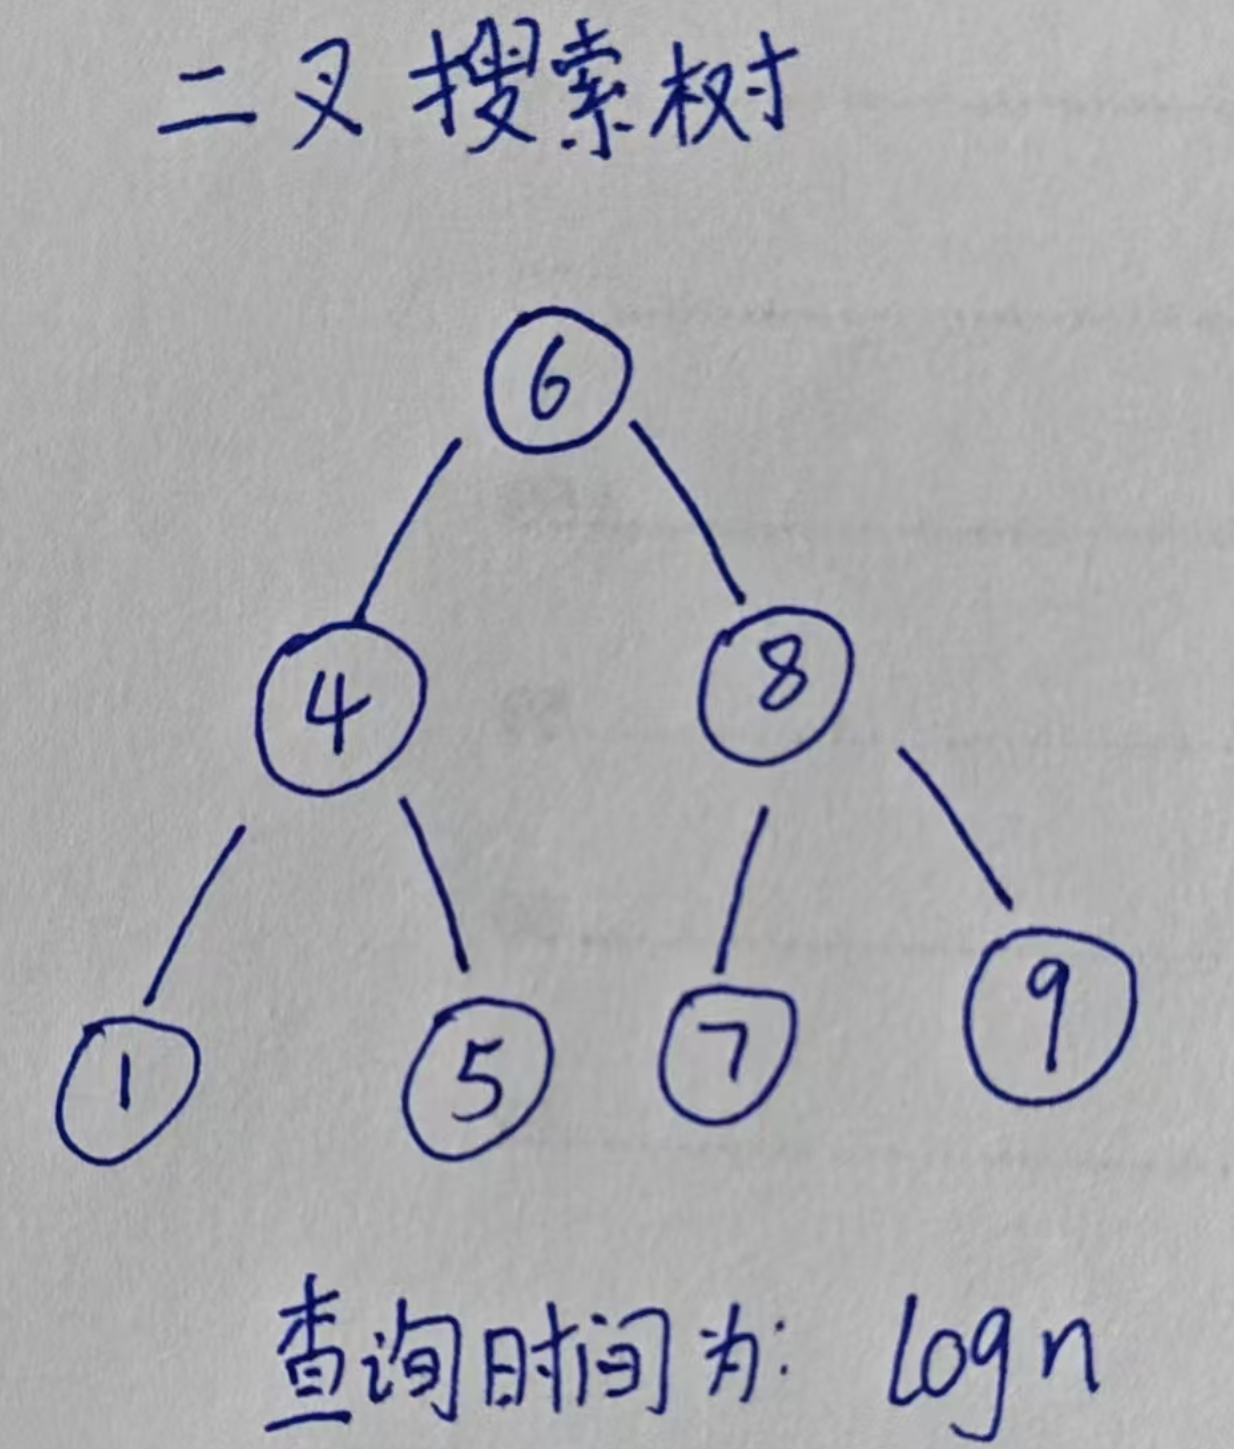 二叉搜索树
6
4 8
1 5 7 9
查询时间为: log n